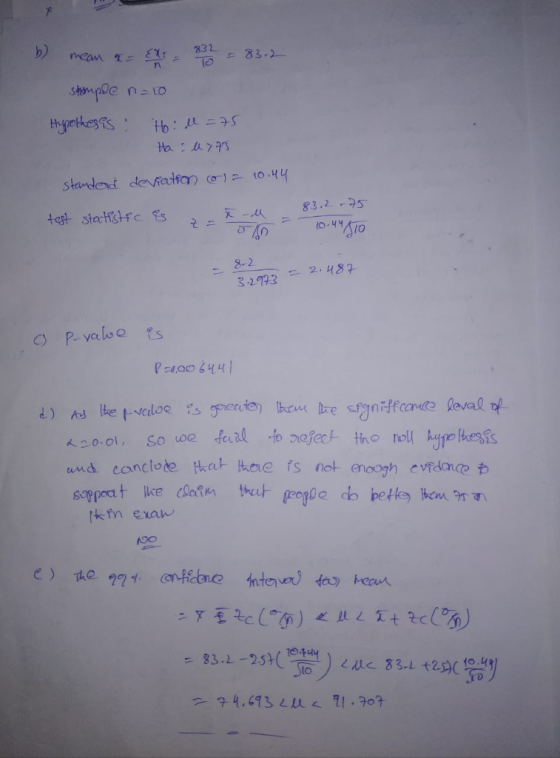 b) mean x = Σxi/n = 832/10 = 83.2
sample n = 10
Hypothesis : H0 : μ = 75
Ha : μ > 75
standard deviation (σ) = 10.44
test statistic is z = x̄ - μ / σ/√n = 83.2 - 75 / 10.44/√10
= 8.2 / 3.2973 = 2.487
c) P-value is
P=0.006441
d) As the p-value is greater than the significance level of
α=0.01, so we fail to reject the null hypothesis
and conclude that there is not enough evidence to
support the claim that people do better than 75 on
exam
NO
e) The 99% confidence interval for mean
= x̄ - zc(σ/√n) < μ < x̄ + zc(σ/√n)
= 83.2 - 257(10.44/√10) < μ < 83.2 + 257(10.44/√10)
= 74.693 < μ < 91.707